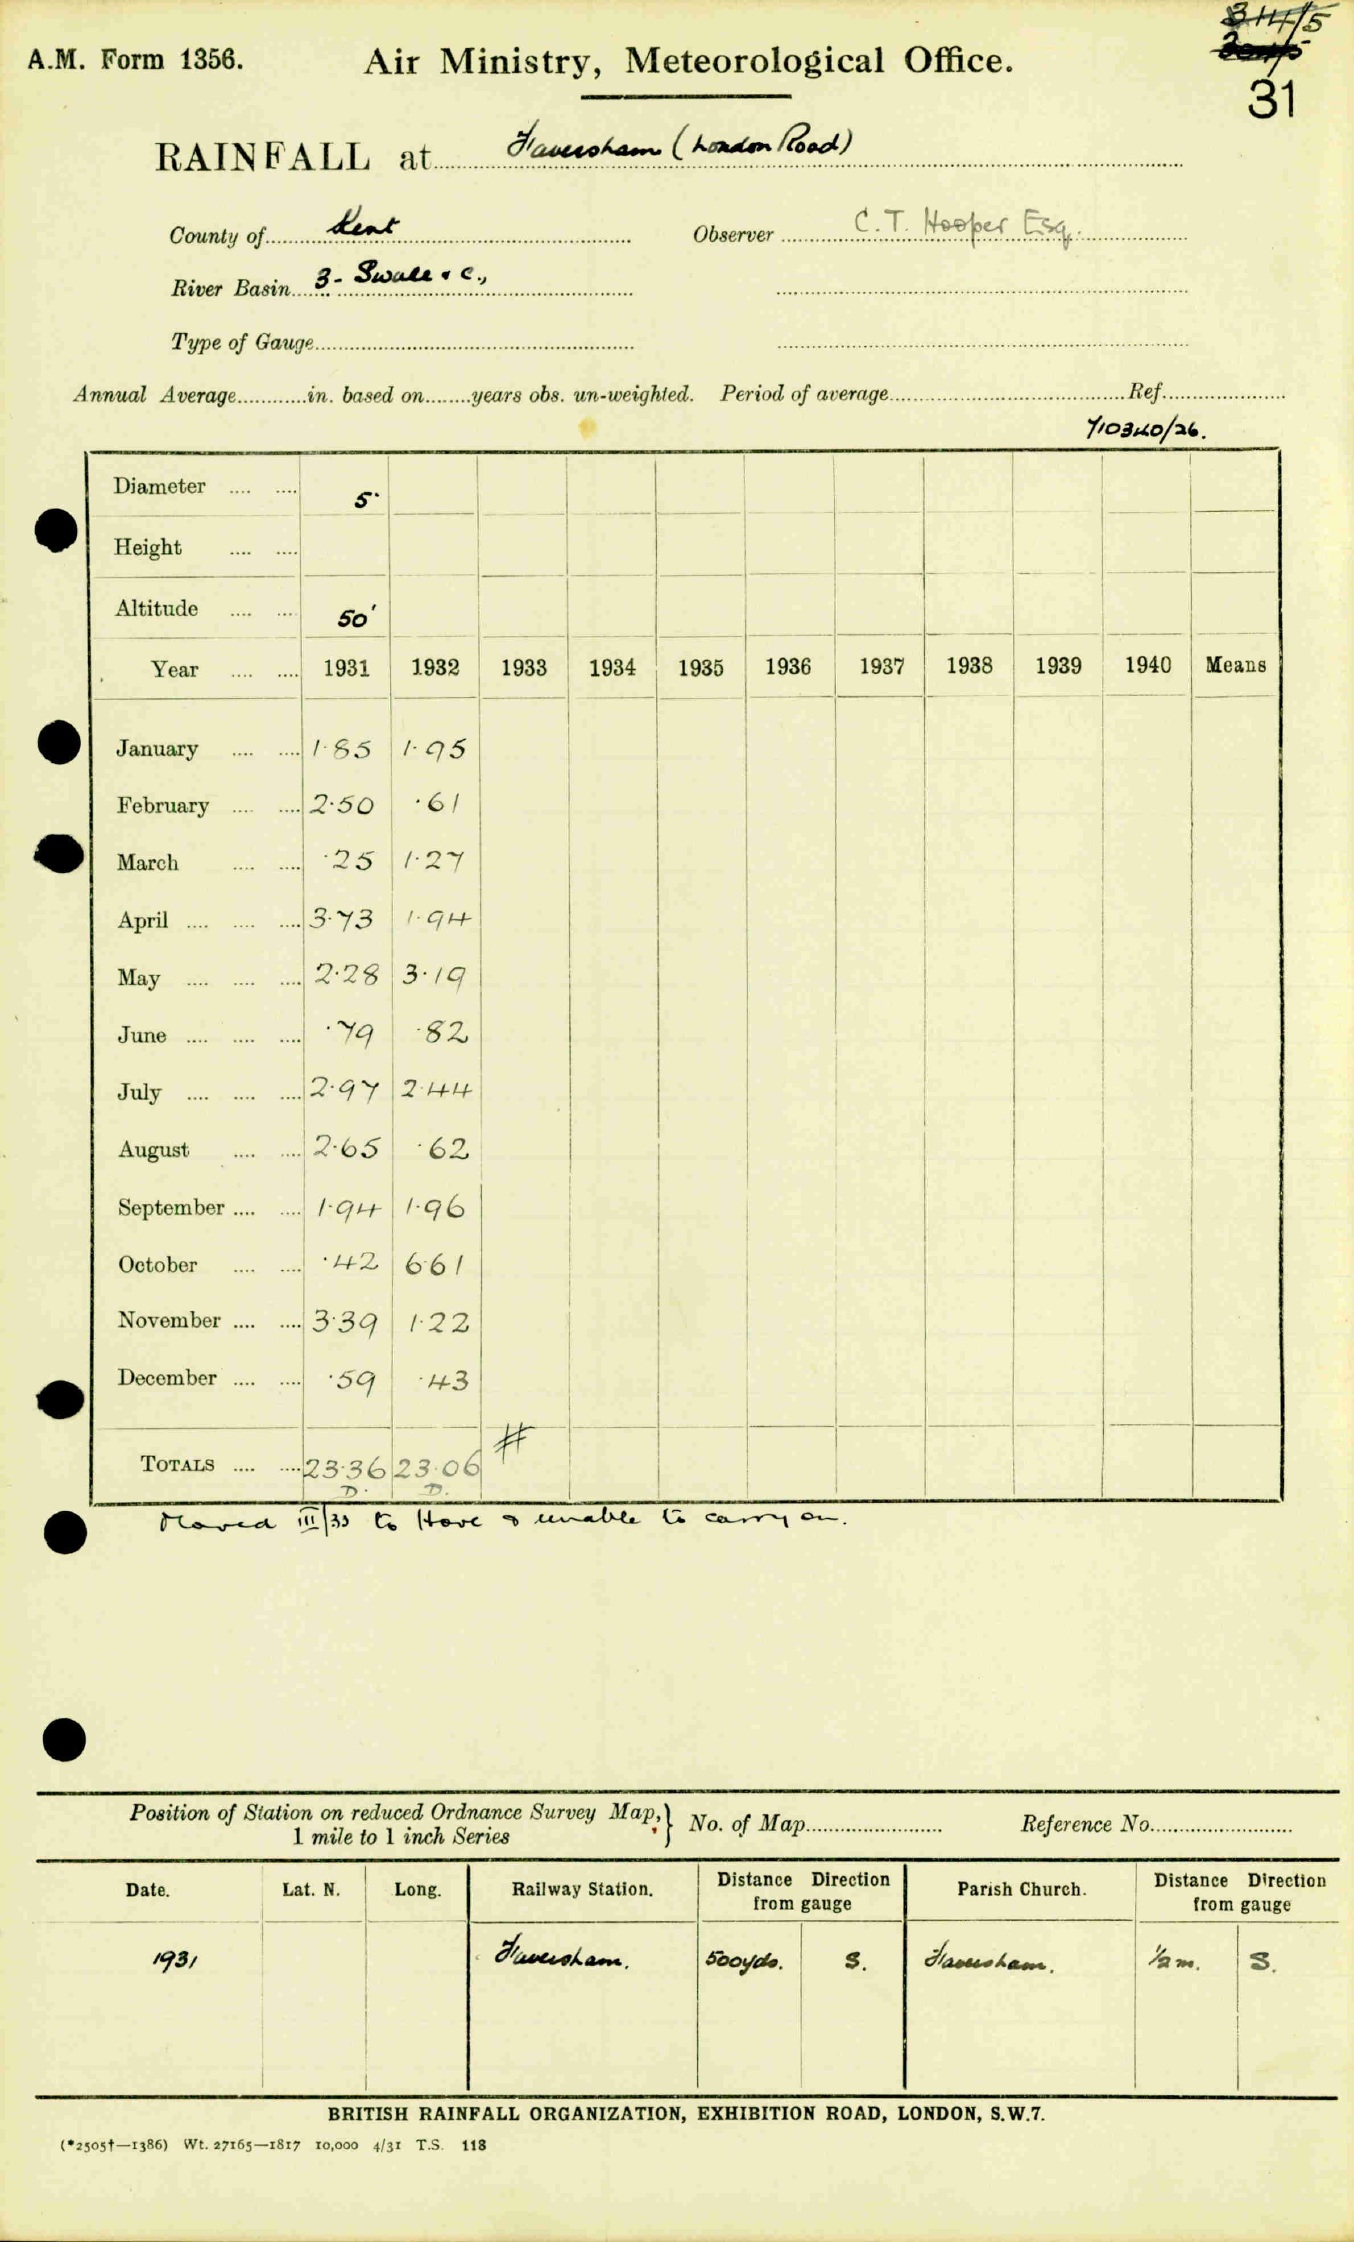 314/5
31
A.M. Form 1356. Air Ministry, Meteorological Office.
RAINFALL at Faversham (London Road)
County of Kent Observer C. T. Hooper Esq.
River Basin 3 - Swale & c.,
Type of Gauge
Annual Average in. based on years obs. un-weighted. Period of average Ref.
710340/26.
Diameter 5"
Height
Altitude 50'
Year 1931 1932 1933 1934 1935 1936 1937 1938 1939 1940 Means
January 1.85 1.95
February 2.50 .61
March .25 1.27
April 3.73 1.94
May 2.28 3.19
June .79 .82
July 2.97 2.44
August 2.65 .62
September 1.94 1.96
October .42 6.61
November 3.39 1.22
December .59 .43
#
TOTALS 23.36 23.06
D. D.
Moved III/33 to Hove & unable to carry on.
Position of Station on reduced Ordnance Survey Map, } No. of Map Reference No.
1 mile to 1 inch Series
Date. Lat. N. Long. Railway Station. Distance Direction from gauge Parish Church. Distance Direction from gauge
1931 Faversham. 500yds. S. Faversham. 1/2 m. S.
BRITISH RAINFALL ORGANIZATION, EXHIBITION ROAD, LONDON, S.W.7.
(*2505†—1386) Wt. 27165—1817 10,000 4/31 T.S. 118